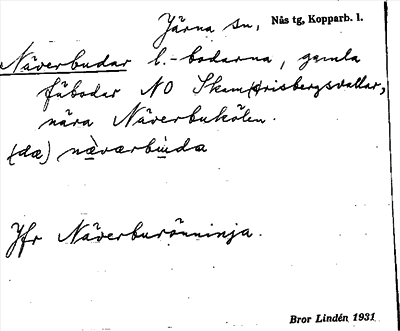 Järna sn, Nås tg, Kopparb. l.
Näverbudar l. -bodarna, gamla
fäbodar NO Skamfrisbergsvallar,
nära Näverbukölen.
(dœ) nœ̀vœrbùda
Jfr Näverburönninja.
Bror Lindén 1931